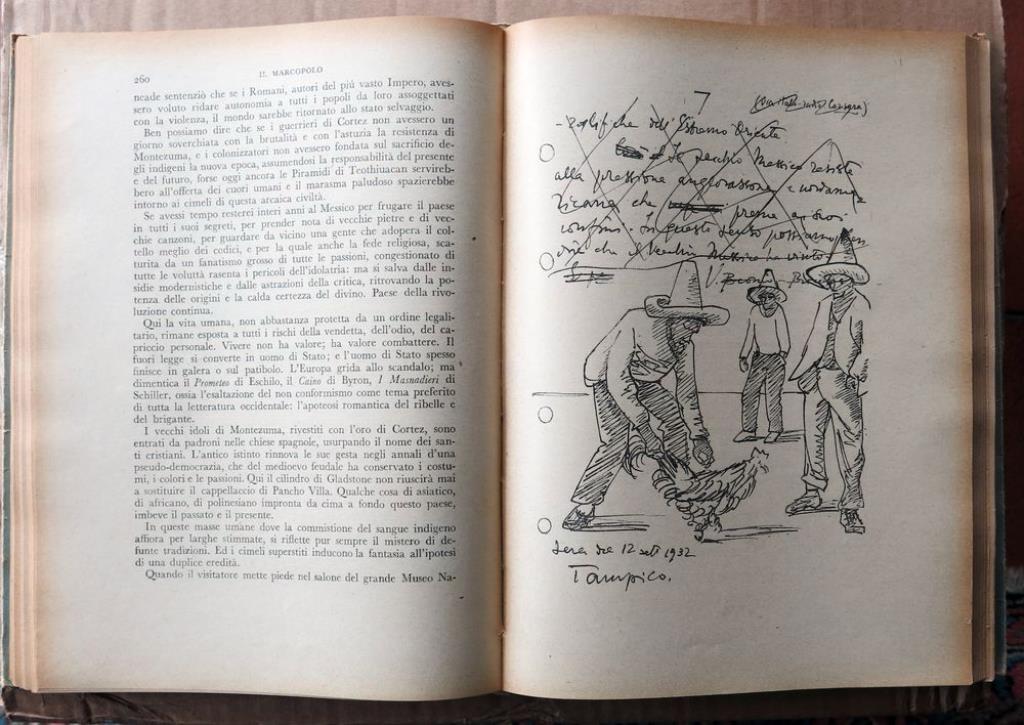 260
IL MARCOPOLO
neade sentenziò che se i Romani, autori del più vasto Impero, aves-
sero voluto ridare autonomia a tutti i popoli da loro assoggettati
con la violenza, il mondo sarebbe ritornato allo stato selvaggio.
Ben possiamo dire che se i guerrieri di Cortez non avessero un
giorno soverchiata con la brutalità e con l'astuzia la resistenza di
Montezuma, e i colonizzatori non avessero fondata sul sacrificio de-
gli indigeni la nuova epoca, assumendosi la responsabilità del presente
e del futuro, forse oggi ancora le Piramidi di Teothiuacan servireb-
bero all'offerta dei cuori umani e il marasma paludoso spazierebbe
intorno ai cimeli di questa arcaica civiltà.
Se avessi tempo resterei interi anni al Messico per frugare il paese
in tutti i suoi segreti, per prender nota di vecchie pietre e di vec-
chie canzoni, per guardare da vicino una gente che adopera il col-
tello meglio dei codici, e per la quale anche la fede religiosa, sca-
turita da un fanatismo grosso di tutte le passioni, congestionato di
tutte le voluttà rasenta i pericoli dell'idolatria: ma si salva dalle in-
sidie modernistiche e dalle astrazioni della critica, ritrovando la po-
tenza delle origini e la calda certezza del divino. Paese della rivo-
luzione continua.
Qui la vita umana, non abbastanza protetta da un ordine legali-
tario, rimane esposta a tutti i rischi della vendetta, dell'odio, del ca-
priccio personale. Vivere non ha valore; ha valore combattere. Il
fuori legge si converte in uomo di Stato; e l'uomo di Stato spesso
finisce in galera o sul patibolo. L'Europa grida allo scandalo; ma
dimentica il Prometeo di Eschilo, il Caino di Byron, I Masnadieri di
Schiller, ossia l'esaltazione del non conformismo come tema preferito
di tutta la letteratura occidentale: l'apoteosi romantica del ribelle e
del brigante.
I vecchi idoli di Montezuma, rivestiti con l'oro di Cortez, sono
entrati da padroni nelle chiese spagnole, usurpando il nome dei san-
ti cristiani. L'antico istinto rinnova le sue gesta negli annali d'una
pseudo-democrazia, che del medioevo feudale ha conservato i costu-
mi, i colori e le passioni. Qui il cilindro di Gladstone non riuscirà mai
a sostituire il cappellaccio di Pancho Villa. Qualche cosa di asiatico,
di africano, di polinesiano impronta da cima a fondo questo paese,
imbeve il passato e il presente.
In queste masse umane dove la commistione del sangue indigeno
affiora per larghe stimmate, si riflette pur sempre il mistero di de-
funte tradizioni. Ed i cimeli superstiti inducono la fantasia all'ipotesi
di una duplice eredità.
Quando il visitatore mette piede nel salone del grande Museo Na-
7
che dell'Estremo Oriente
vecchio Messico resiste
alla pressione anglosassone e nordame
ricana che preme ai suoi
confini. In questo senso possiamo ben
dire che il vecchio Messico ha
12 sett 1932
Tampico.